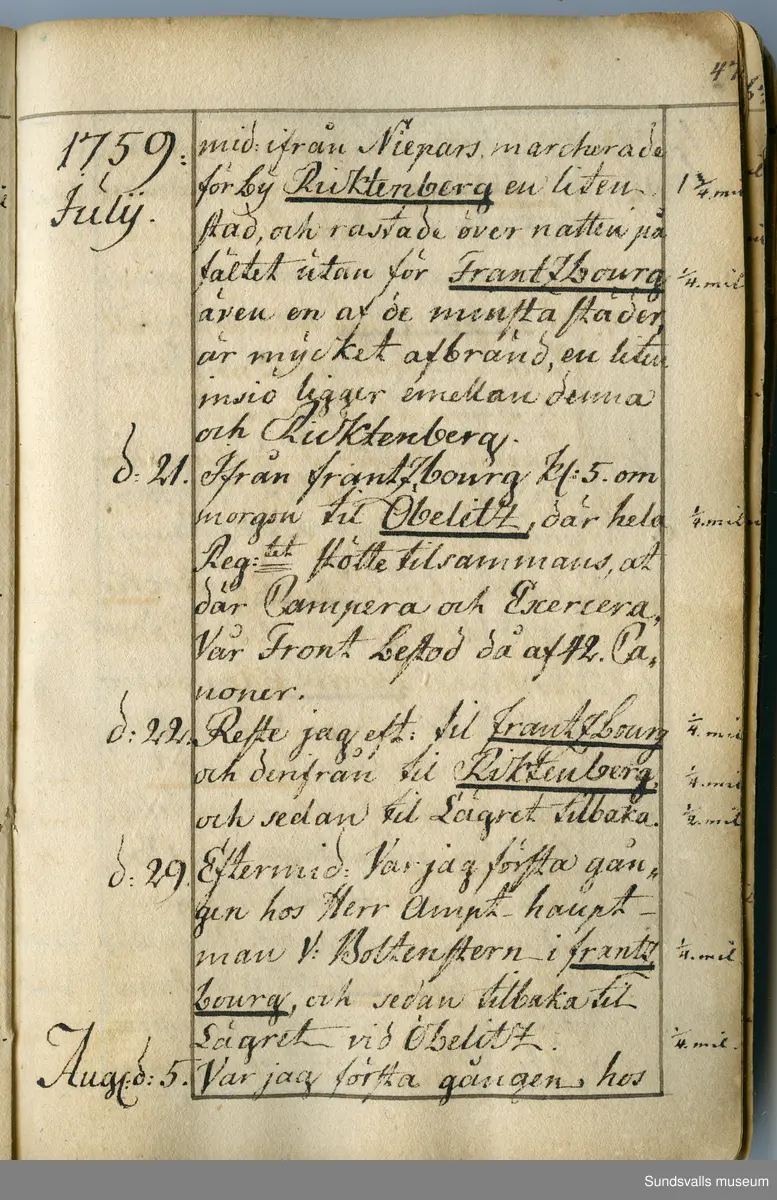 47
1759. mid: ifrån Niepars, marcherade
Julij. förby Ricktenberg en liten 1 3/4. mil
stad, och rastade över natten på
fältet utan för Frantzbourg 1/4. mil
även en af de minsta städer,
är mycket afbränd, en liten
insiö ligger emellan denna
och Ricktenberg.
d: 21. Ifrån frantzbourg Kl: 5. om
morgon til Öbelitz, där hela 1/4. mil
Reg:tet stötte tilsammans, at
där Campera och Exercera,
Vår Front bestod då af 42. Ca„
noner.
d: 22. Reste jag eft: til frantzbourg 1/4. mil
och derifrån til Riktenberg, 1/4. mil
och sedan til Lägret tilbaka. 1/2. mil
d: 29. Eftermid: Var jag första gån„
gen hos Herr Ampt-haupt-
man V: Boltenstern i frantz 1/4. mil
bourg, och sedan tilbaka til
Lägret vid Öbelitz. 1/4. mil.
Aug: d: 5. Var jag första gången hos
Sundsvalls museum